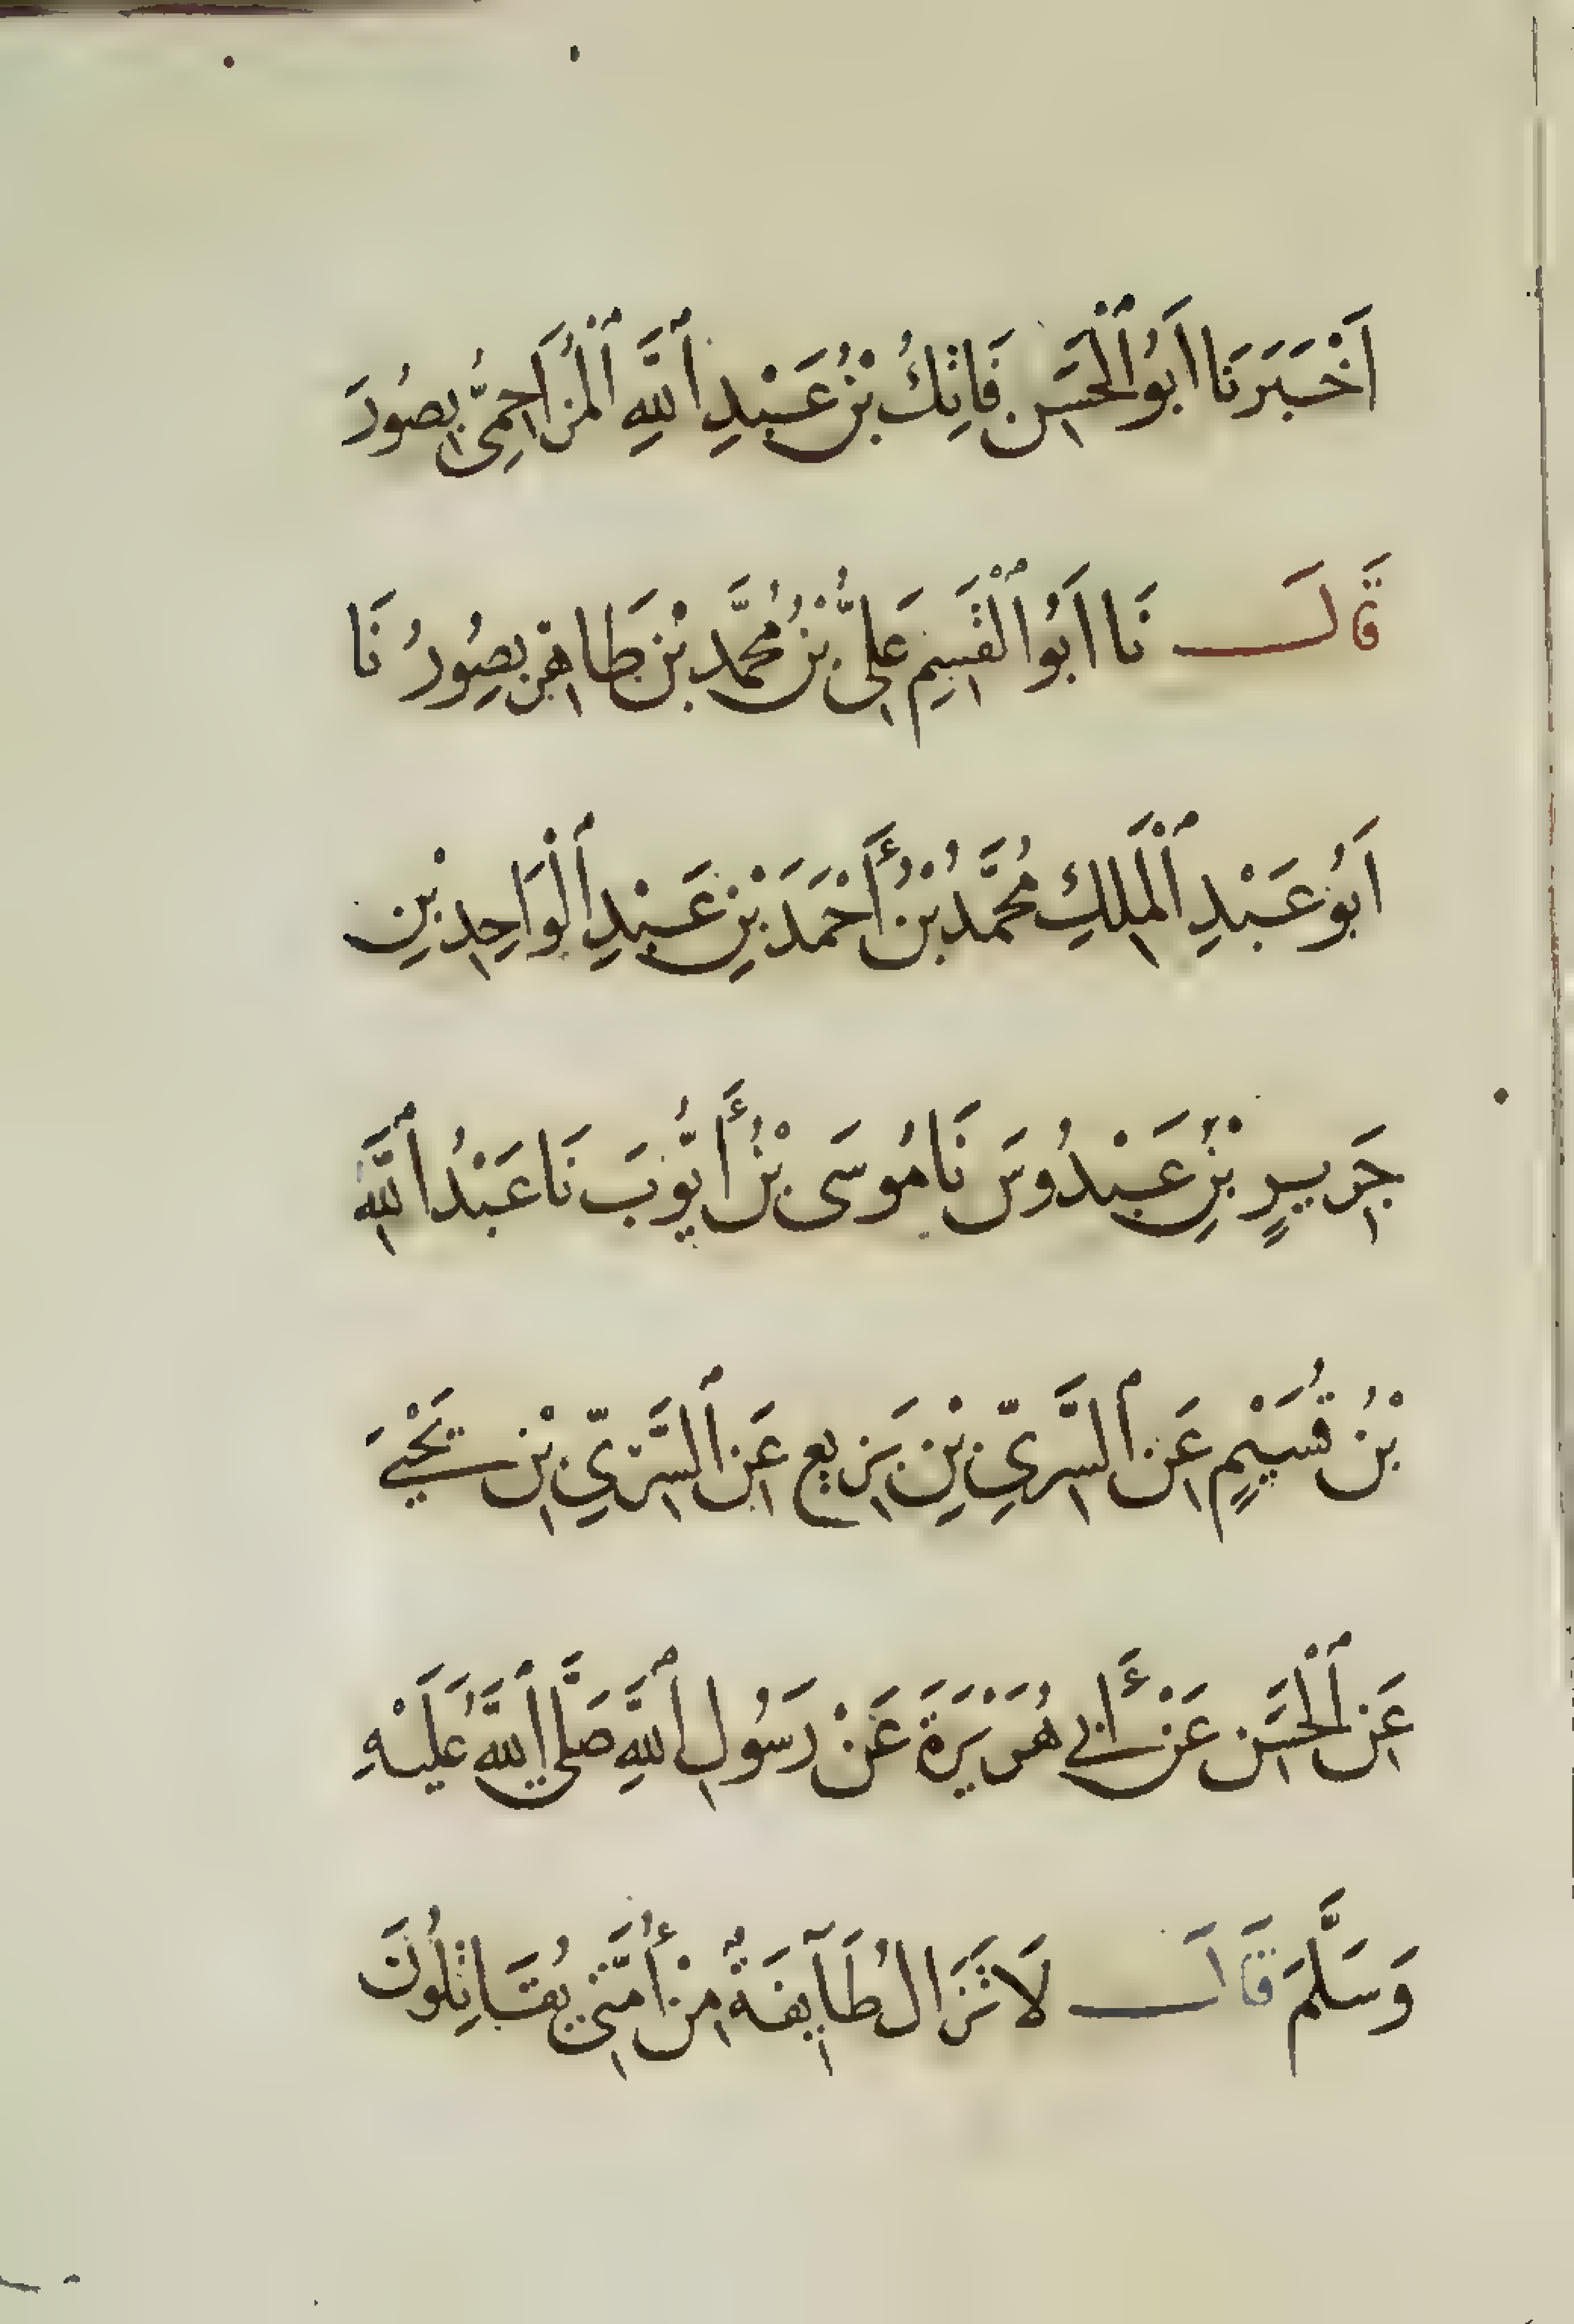 اَخْبَرَنَا اَبُو ٱلْحَسَنِ فَاتِكُ بْنُ عَبْدِ ٱللَّهِ ٱلْمُزَاحِمِىُّ بِصُورَ
قَالَ نَا اَبُو ٱلْقَسِمِ عَلِىُّ بْنُ مُحَمَّدِ بْنِ طَاهِرٍ بِصُورُ نَا
اَبُو عَبْدِ ٱلْمَلِكِ مُحَمَّدُ بْنُ أَحْمَدَ بْنِ عَبْدِ ٱلْوَاحِدِ بْنِ
جَرِيرٍ بْنِ عَبْدُوسَ نَا مُوسَى بْنُ أَيُّوبَ نَا عَبْدُ ٱللَّهِ
بْنُ قُسَيْمٍ عَنِ ٱلسَّرِيِّ بْنِ بَزِيعٍ عَنِ ٱلسَّرِيِّ بْنِ يَحْيَى
عَنِ ٱلْحَسَنِ عَنْ أَبِي هُرَيْرَةَ عَنْ رَسُولِ ٱللَّهِ صَلَّى ٱللَّهُ عَلَيْهِ
وَسَلَّمَ قَالَ لَا تَزَالُ طَآيِفَةٌ مِنْ أُمَّتِى يُقَاتِلُونَ